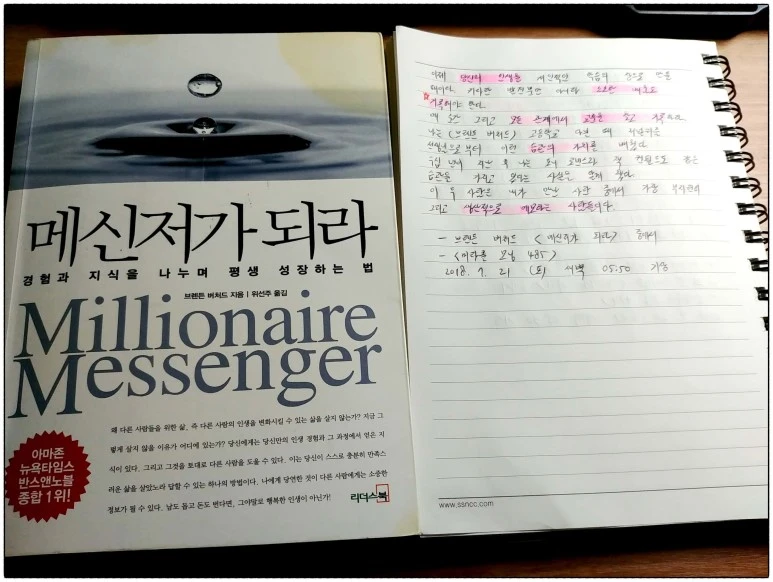 메신저가 되라
경험과 지식을 나누며 평생 성장하는 법
브렌든 버처드 지음 | 위선주 옮김
Millionaire
Messenger
아마존
뉴욕타임스
반스앤노블
종합 1위!
왜 다른 사람들을 위한 삶, 즉 다른 사람의 인생을 변화시킬 수 있는 삶을 살지 않는가? 지금 그
렇게 살지 않을 이유가 어디에 있는가? 당신에게는 당신만의 인생 경험과 그 과정에서 얻은 지
식이 있다. 그리고 그것을 토대로 다른 사람을 도울 수 있다. 이는 당신이 스스로 충분히 만족스
러운 삶을 살았노라 답할 수 있는 하나의 방법이다. 나에게 당연한 것이 다른 사람에게는 소중한
정보가 될 수 있다. 남도 돕고 돈도 번다면, 그야말로 행복한 인생이 아닌가!
리더스북
이제 당신의 인생을
기록해야 한다.
매 순간 그리고 모든 관계에서 교훈을 찾고
나는 (브렌든 버처드) 고등학교 다닐 때
부터 이런 습관의 가치를 배웠다.
습관을 가지고 있다는 사실을 알게 됐다.
이 두 사람은 내가 만난 사람 중에서 가장
그리고 생산적으로 메모하는 사람들이다.
- 브렌든 버처드 <메신저가 되라> 중에서
485>
2018. 7. 21 (토) 새벽 05:50 기상
www.ssncc.com